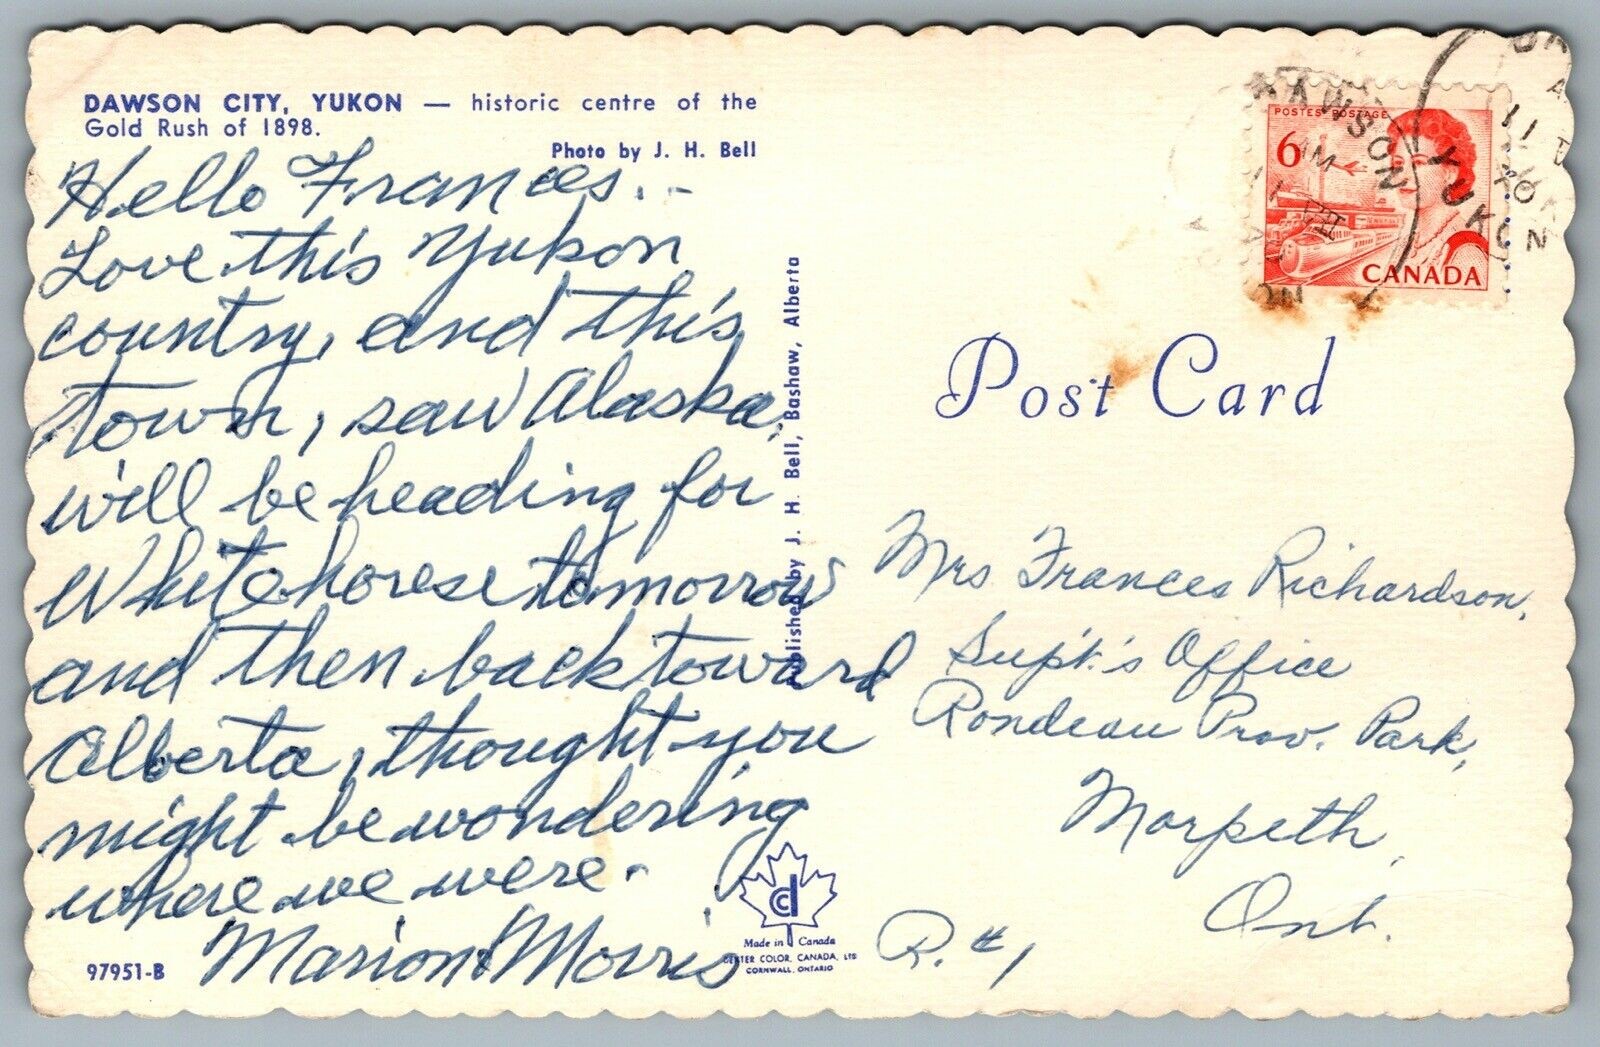 DAWSON CITY, YUKON — historic centre of the
Gold Rush of 1898.
Photo by J. H. Bell
Hello Frances. -
Love this Yukon
country, and this
town, saw Alaska,
will be heading for
Whitehorese tomorrow
and then back toward
Alberta, thought you
might be wondering
where we were -
Marion & Morris
97951-B
Published by J. H. Bell, Bashaw, Alberta
Made in Canada
DEXTER COLOR, CANADA, LTD
CORNWALL, ONTARIO
POSTES POSTAGE
6
CANADA
DAWSON
YUKON
AM
11
Post Card
Mrs Frances Richardson,
Supt.'s Office
Rondeau Prov. Park,
Morpeth,
Ont.
R. #1